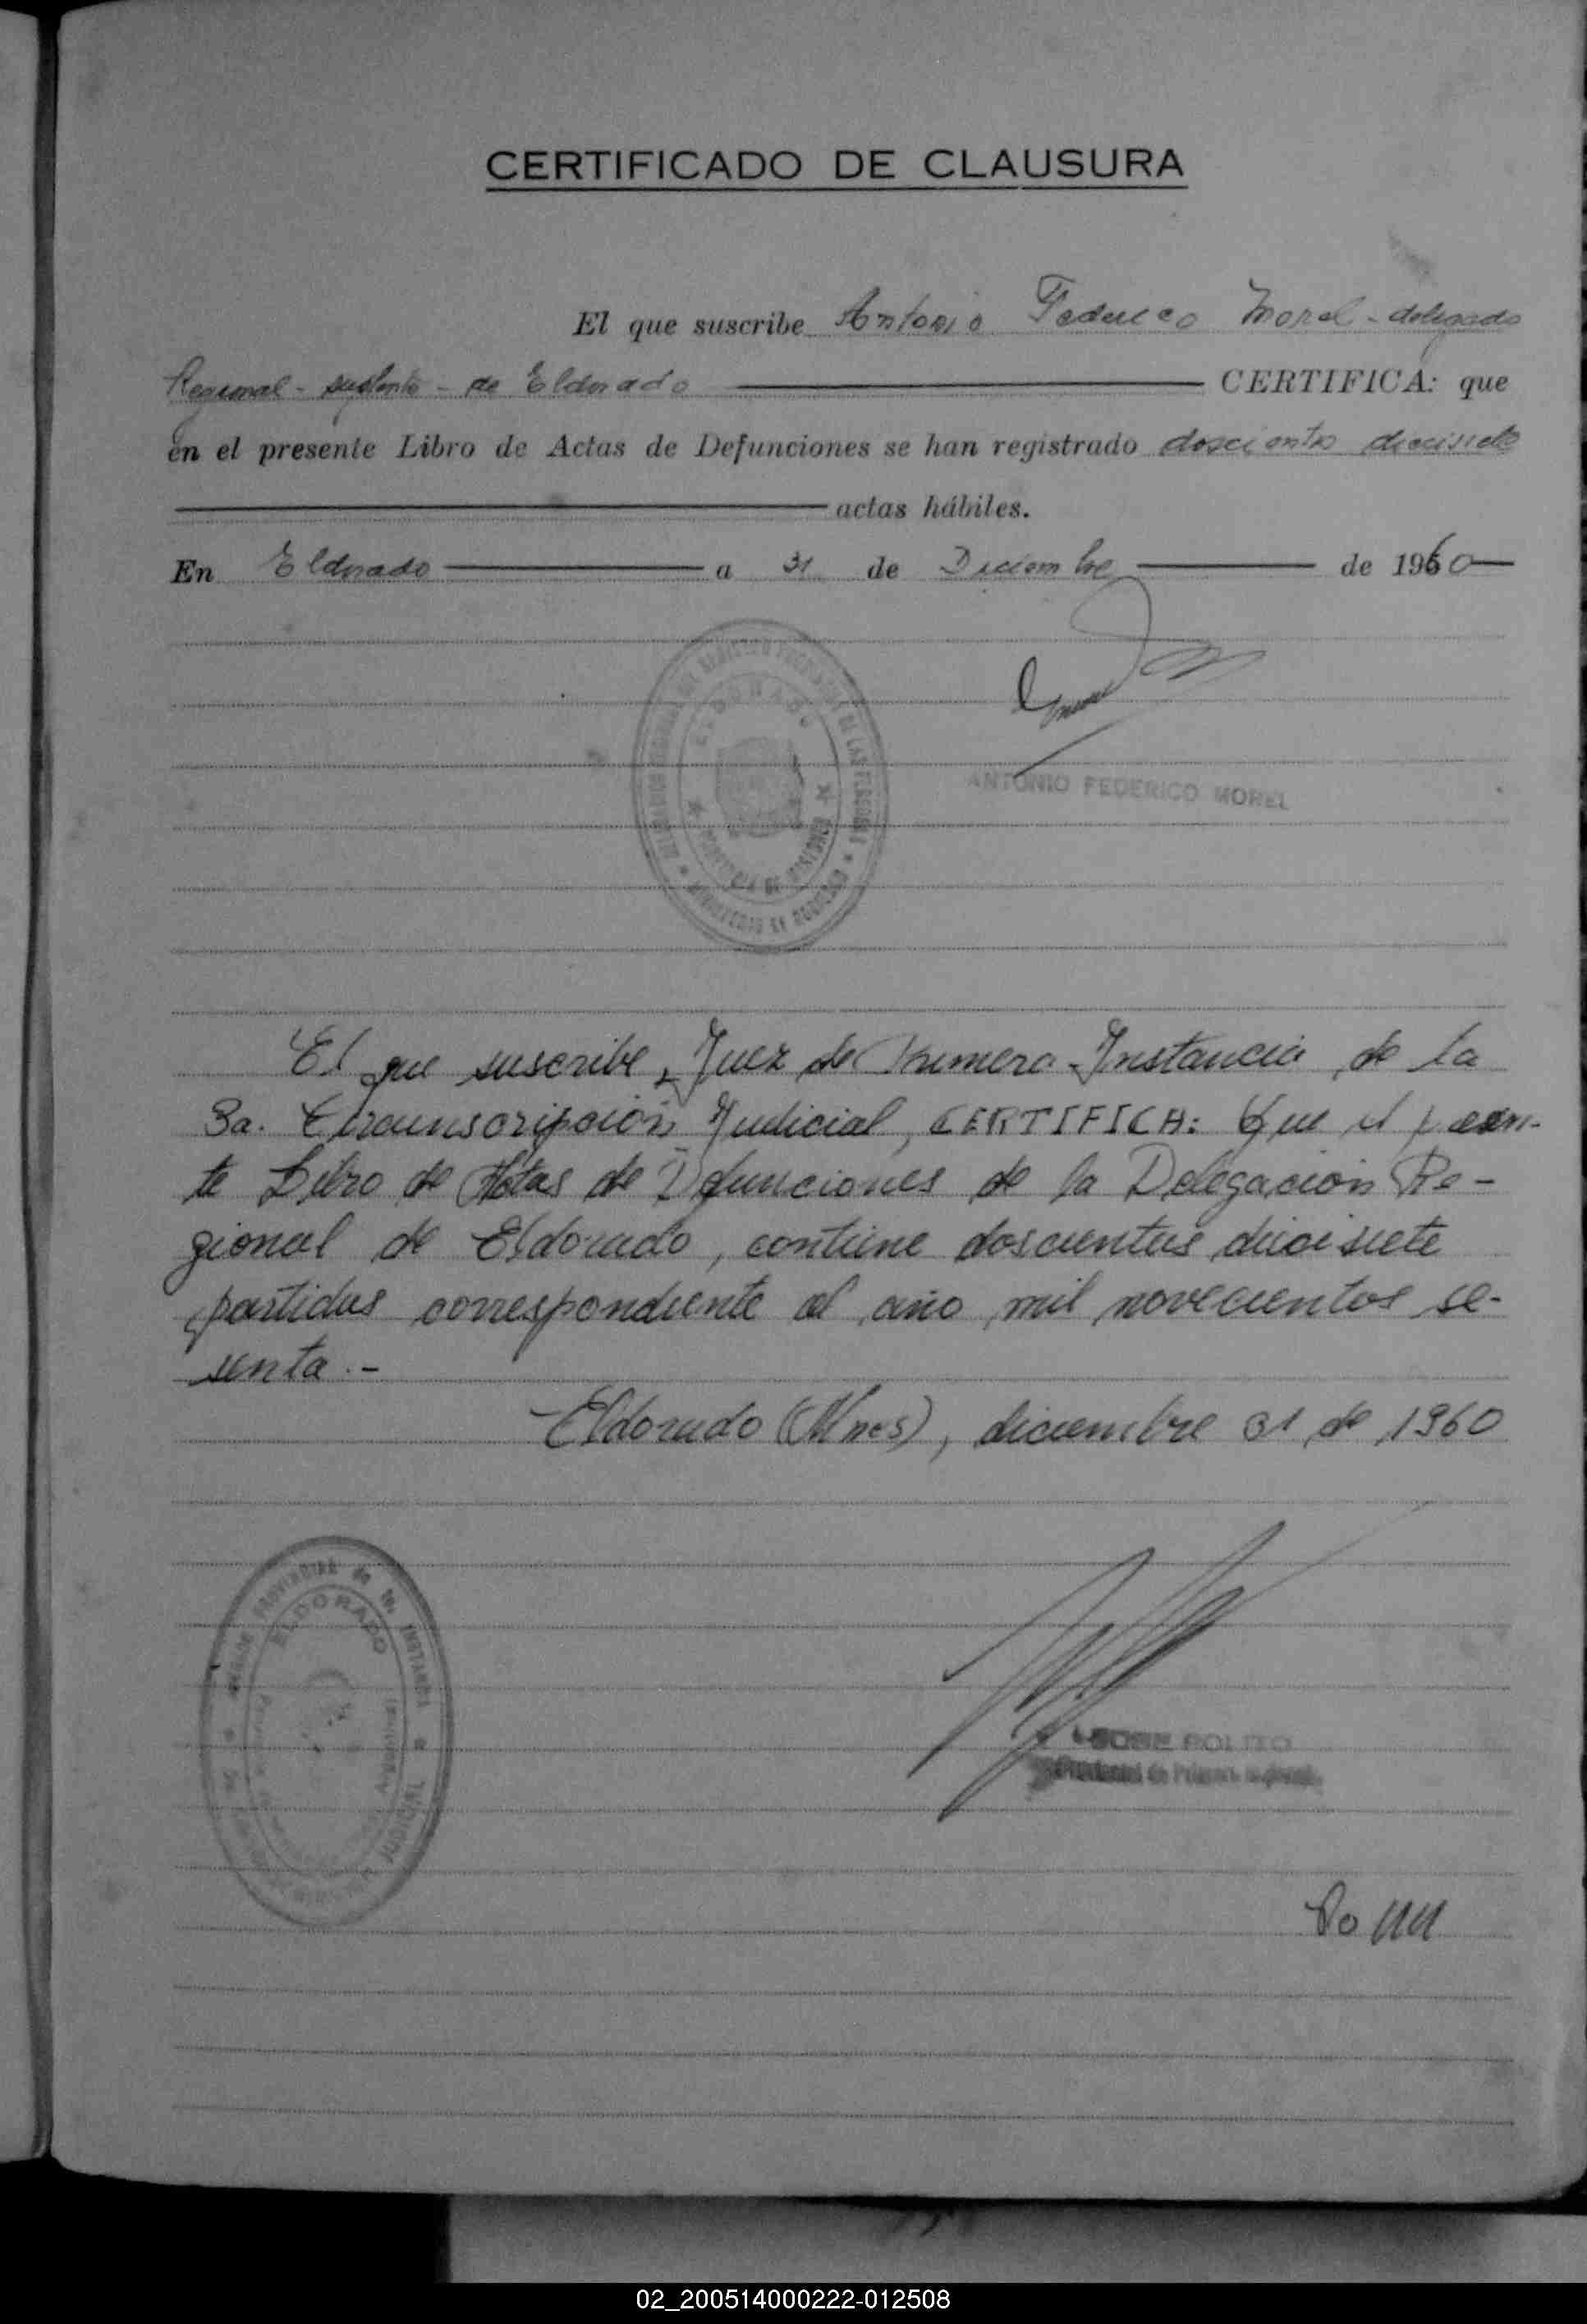 CERTIFICADO DE CLAUSURA
El que suscribe Antonio Federico Morel - delegado
Regional - suplente - de Eldorado CERTIFICA: que
en el presente Libro de Actas de Defunciones se han registrado doscientos diecisiete
actas hábiles.
En Eldorado a 31 de Diciembre de 1960
ELDORADO
PROVINCIA DE MISIONES
ANTONIO FEDERICO MOREL
El que suscribe, Juez de Primera Instancia de la
3a. Circunscripción Judicial, CERTIFICA: Que el presen-
te Libro de Actas de Defunciones de la Delegación Re-
gional de Eldorado, contiene doscientas diecisiete
partidas correspondiente al año mil novecientos se-
senta.-
Eldorado (Mnes), diciembre 31 de 1960
ELDORADO
POLITO
de Primera
02_200514000222-012508